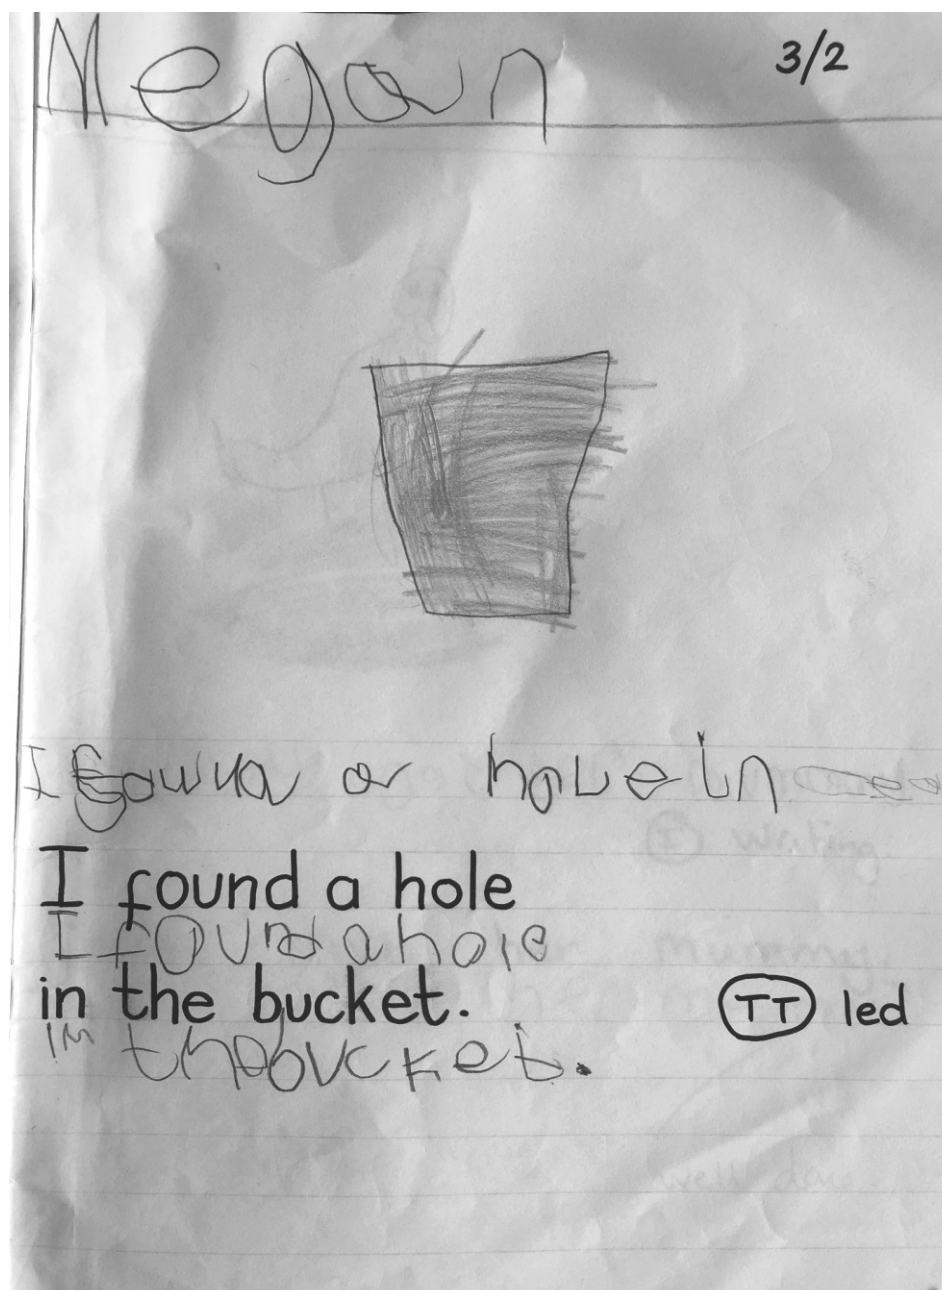 Megan 3/2
I found a hole in
I found a hole
I found a hole
in the bucket. TT led
in the bucket.